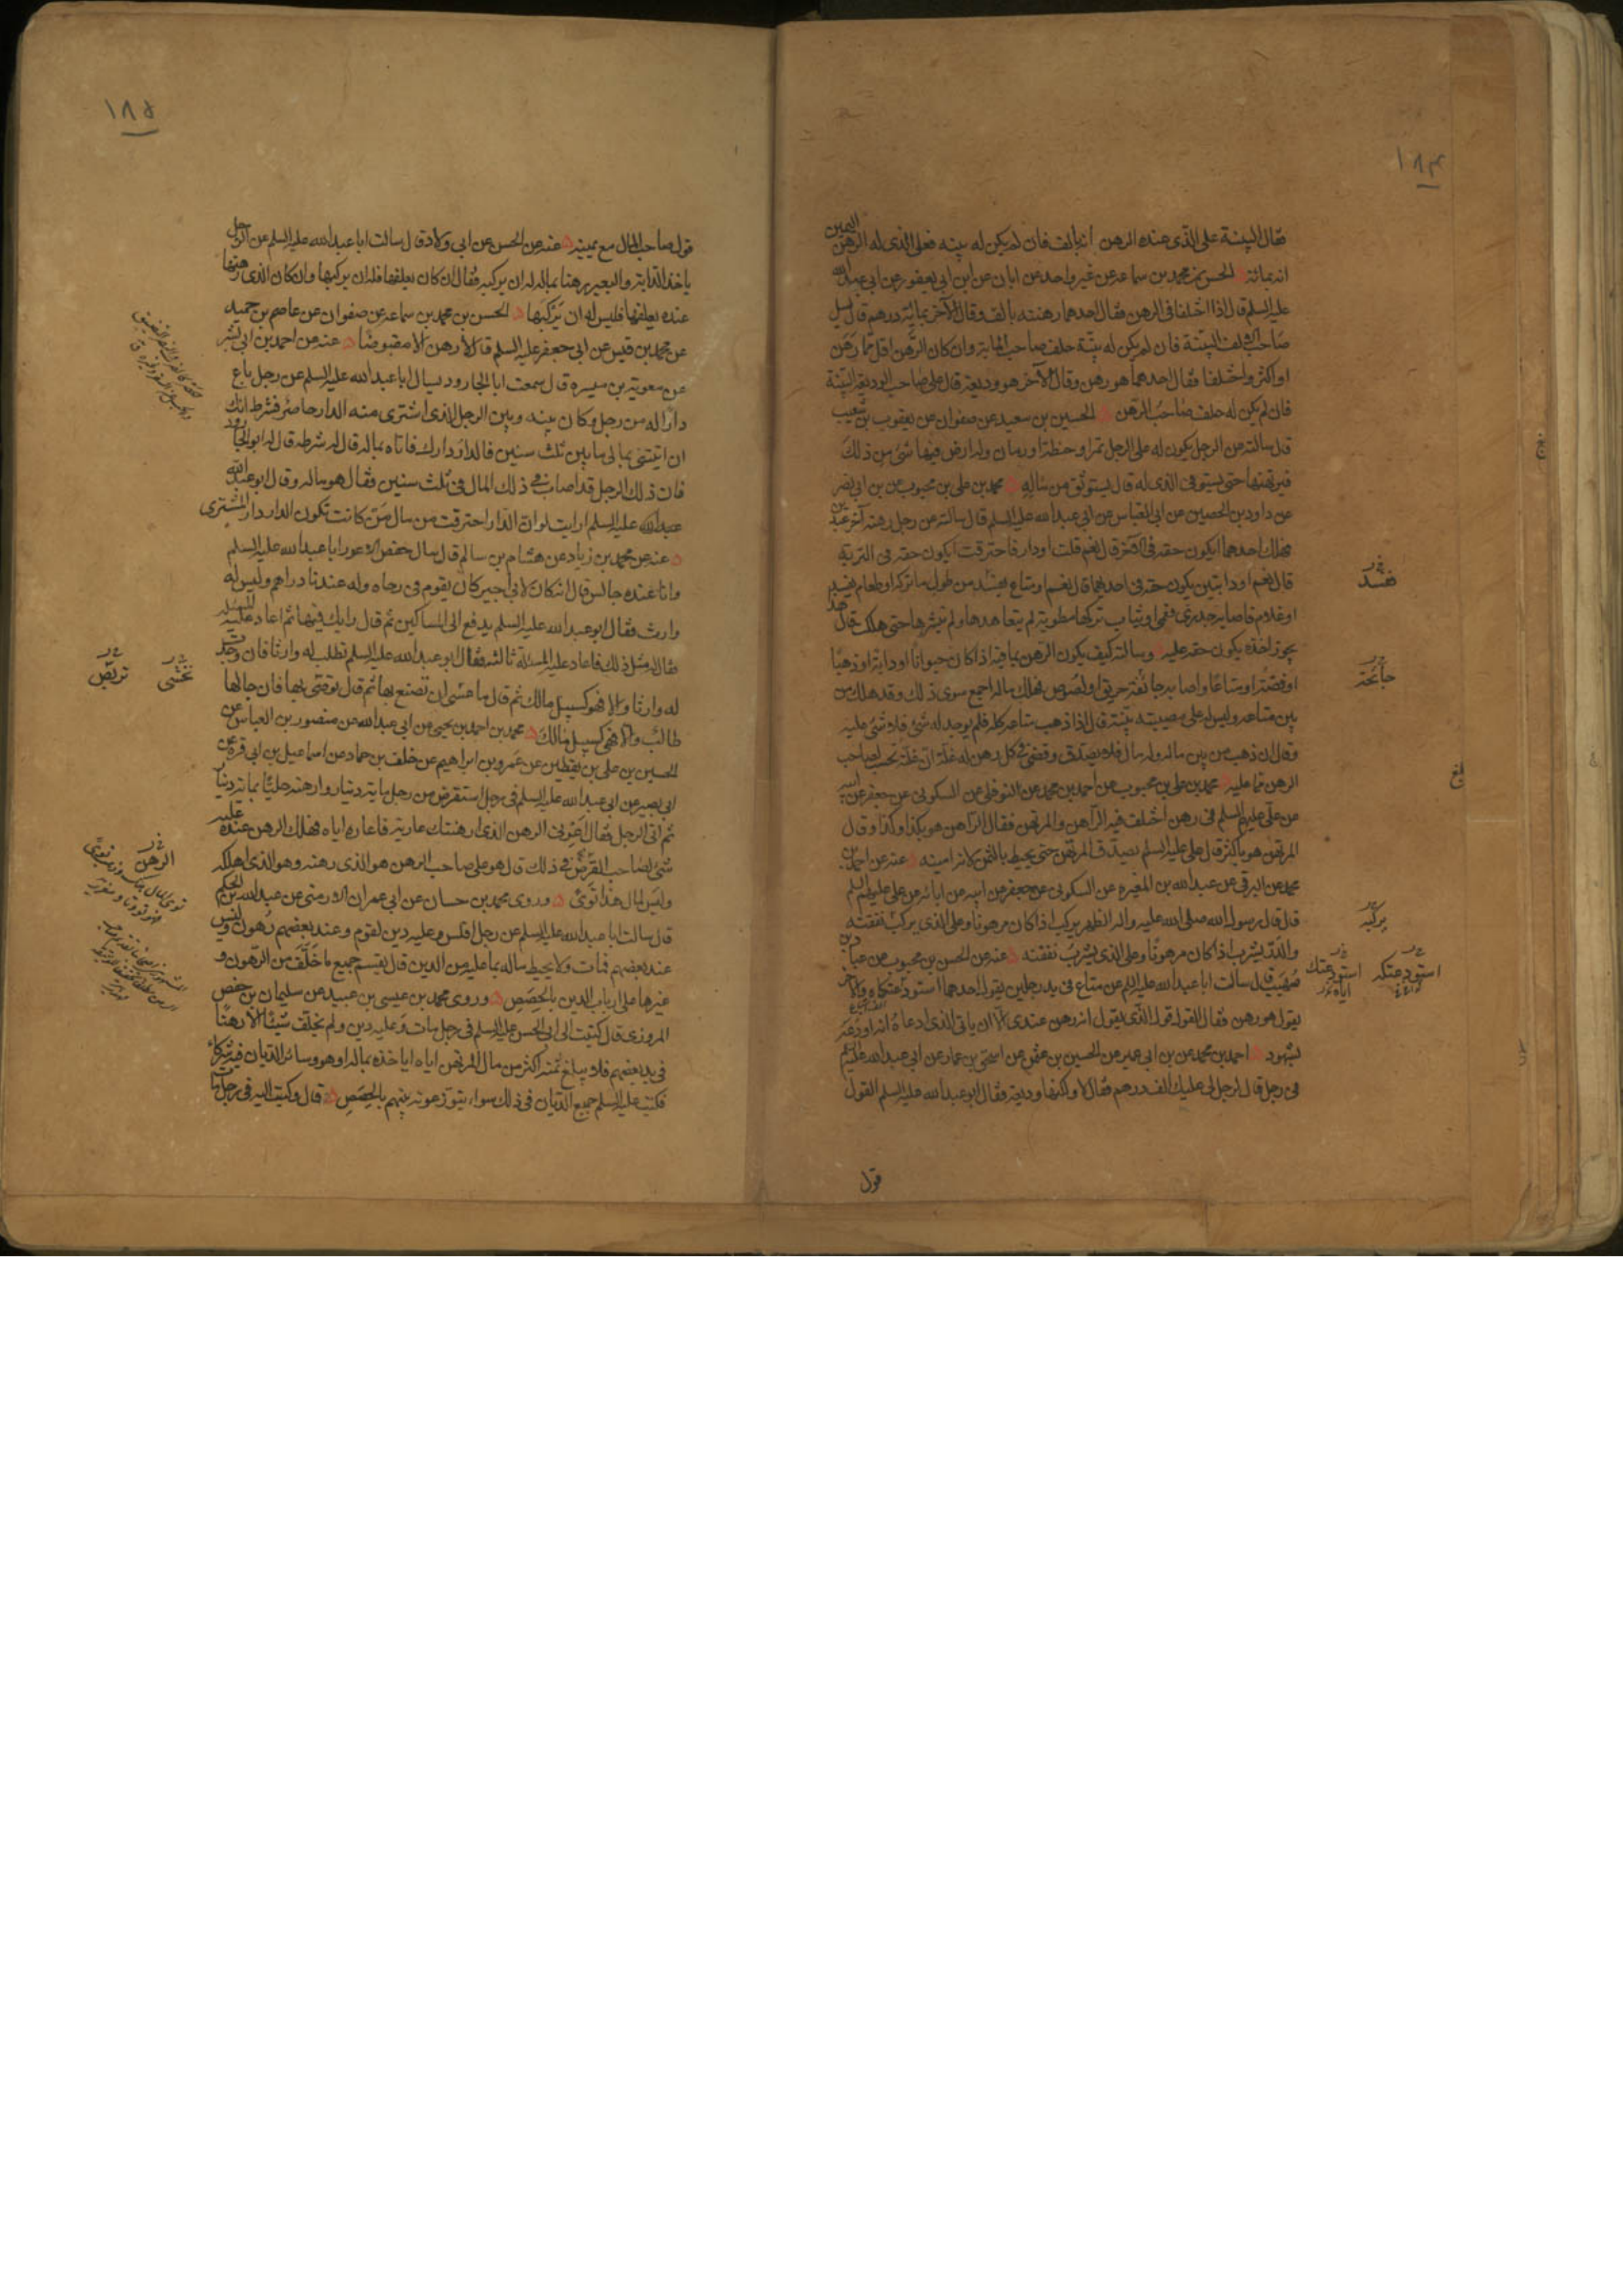 ١٨٤
فقال البينة على الذى عنده الرهن انه بالف فان لم يكن له بينة فعلى الذى له الرهن اليمين
انه بمائة الحسن بن محمد بن سماعة عن غير واحد عن ابان عن ابن ابى يعفور عن ابى عبد الله
عليه السلم قال اذا اختلفا فى الرهن فقال احدهما رهنته بالف وقال الآخر بمائة درهم قال يسأل
صاحب الالف البينة فان لم يكن له بينة حلف صاحب المائة وان كان الرهن اقل مما رهن
او اكثر واختلفا فقال احدهما هو رهن وقال الآخر هو وديعة قال على صاحب الوديعة البينة
فان لم يكن له حلف صاحب الرهن الحسين بن سعيد عن صفوان عن يعقوب بن شعيب
قال سالته عن الرجل يكون له على الرجل تمر او حنطة او رمان وله ارض فيها شئ من ذلك
فيرتهنها حتى يستوفى الذى له قال يستوثق من ماله محمد بن على بن محبوب عن بن ابى نصر
عن داود بن الحصين عن ابى العباس عن ابى عبد الله عليه السلم قال سالته عن رجل رهنه آخر عبدين
فهلك احدهما ايكون حقه فى الآخر قال نعم قلت او دار فاحترقت ايكون حقه فى التربة
قال نعم او دابتين يكون حقه فى احديهما قال نعم او متاع يفسد من طول ما تركه او طعام يفسد
او غلام فاصابه جدرى فعمى او ثياب تركها مطوية لم يتعاهدها ولم ينشرها حتى هلك قال هذا
يجوز اخذه يكون حقه عليه وسالته كيف يكون الرهن بما فيه اذا كان حيوانا او دابة او ذهبا
او فضة او متاعا واصابه جائحة حريق او لصوص فهلك ماله اجمع سوى ذلك وقد هلك من
بين متاعه وليس له على مصيبته بينة قال اذا ذهب متاعه كله فلم يوجد له شئ فلا شئ عليه
وقال ان ذهب من بين ماله وله مال فلا يصدق وقضى فى كل رهن له غلة ان غلته تحسب لصاحب
الرهن مما عليه محمد بن على بن محبوب عن احمد بن محمد عن النوفلى عن السكونى عن جعفر عن ابيه
عن على عليهم السلم فى رهن اختلف فيه الراهن والمرتهن فقال الراهن هو بكذا وكذا وقال
المرتهن هو باكثر قال على عليه السلم يصدق المرتهن حتى يحيط بالثمن لانه امينه عنه عن احمد بن
محمد عن البرقى عن عبد الله بن المغيرة عن السكونى عن جعفر عن ابيه عن ابائه عن على عليهم السلم
قال قال رسول الله صلى الله عليه واله الظهر يركب اذا كان مرهونا وعلى الذى يركب نفقته
والدر يشرب اذا كان مرهونا وعلى الذى يشرب نفقته عنه عن الحسن بن محبوب عن عباد بن
صهيب قال سالت ابا عبد الله عليه السلم عن متاع فى يد رجلين يقول احدهما استودعتكاه والآخر
يقول هو رهن فقال القول قول الذى يقول انه رهن عندى الا ان ياتى الذى ادعاه انه اودعه
بشهود احمد بن محمد عن بن ابى عمير عن الحسين بن عثمن عن اسحق بن عمار عن ابى عبد الله عليه السلم
فى رجل قال لرجل لى عليك الف درهم فقال لا ولكنها وديعة فقال ابو عبد الله عليه السلم القول
قول
يفسد
جائحة
يركبه
استودعتكه
استودعتك
اياه
١٨٥
قول صاحب المال مع يمينه عنه عن الحسن عن ابى ولاد قال سالت ابا عبد الله عليه السلم عن الرجل
ياخذ الدابة والبعير رهنا بماله له ان يركبه فقال ان كان يعلفها فله ان يركبها وان كان الذى رهنها
عنده يعلفها فليس له ان يركبها الحسن بن محمد بن سماعة عن صفوان عن عاصم بن حميد
عن محمد بن قيس عن ابى جعفر عليه السلم قال لا رهن الا مقبوضا عنه عن احمد بن ابى بشر
عن معوية بن ميسرة قال سمعت ابا الجارود يسال ابا عبد الله عليه السلم عن رجل باع
دارا له من رجل وكان بينه وبين الرجل الذى اشترى منه الدار حاصر فشرط انك
ان اتيتنى بمالى ما بين ثلث سنين فالدار دارك فاتاه بماله قال له شرطه قال له ابو الجارود
فان ذلك الرجل قد اصاب فى ذلك المال فى ثلث سنين فقال هو ماله وقال ابو عبد الله
عليه السلم ارايت لو ان الدار احترقت من مال من كانت تكون الدار دار المشترى
عنه عن محمد بن زياد عن هشام بن سالم قال سال حفص الاعور ابا عبد الله عليه السلم
وانا عنده جالس قال انه كان لابى اجير كان يقوم فى رحاه وله عندنا دراهم وليس له
وارث فقال ابو عبد الله عليه السلم يدفع الى المساكين ثم قال رايك فيها ثم اعاد عليه المسئلة
فقال له مثل ذلك فاعاد عليه المسئلة ثالثة فقال ابو عبد الله عليه السلم تطلب له وارثا فان وجدت
له وارثا والا فهو كسبيل مالك ثم قال ما عسى ان تصنع بها ثم قال توصى بها فان جاء لها
طالب والا فهى كسبيل مالك محمد بن احمد بن يحيى عن ابى عبد الله عن منصور بن العباس عن
الحسين بن على بن يقطين عن عمرو بن ابراهيم عن خلف بن حماد عن اسماعيل بن ابى قرة عن
ابى بصير عن ابى عبد الله عليه السلم فى رجل استقرض من رجل ماية دينار وارهنه حليا بماية دينار
ثم اتى الرجل فقال اعرنى الرهن الذى ارهنتك عارية فاعاره اياه فهلك الرهن عنده عليه
شئ لصاحب القرض فى ذلك قال هو على صاحب الرهن هو الذى رهنه وهو الذى اهلكه
وليس لمال هذا توى وروى محمد بن حسان عن ابى عمران الارمنى عن عبد الله بن الحكم
قال سالت ابا عبد الله عليه السلم عن رجل افلس وعليه دين لقوم وعند بعضهم رهون وليس
عند بعضهم فمات ولا يحيط ماله بما عليه من الدين قال يقسم جميع ما خلف من الرهون و
غيرها على ارباب الدين بالحصص وروى محمد بن عيسى بن عبيد عن سليمان بن حفص
المروزى قال كتبت الى ابى الحسن عليه السلم فى رجل مات وعليه دين ولم يخلف شيئا الا رهنا
فى يد بعضهم فلا يبلغ ثمنه اكثر من مال المرتهن اياه اياخذه بماله او هو وسائر الديان فيه شركاء
فكتب عليه السلم جميع الديان فى ذلك سواء يتوزعونه بينهم بالحصص قال وكتبت اليه فى رجل مات
الرهن